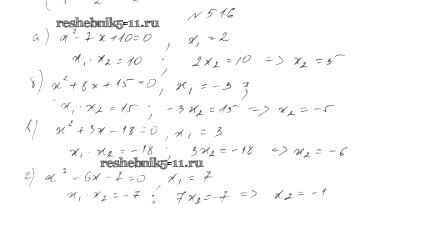 №516
reshebnik5-11.ru
а) x² - 7x + 10 = 0, x₁ = 2
x₁ · x₂ = 10; 2x₂ = 10 => x₂ = 5
б) x² + 8x + 15 = 0, x₁ = -3;
x₁ · x₂ = 15; -3x₂ = 15 => x₂ = -5
в) x² + 3x - 18 = 0, x₁ = 3
x₁ · x₂ = -18; 3x₂ = -18 => x₂ = -6
reshebnik5-11.ru
г) x² - 6x - 7 = 0, x₁ = 7
x₁ · x₂ = -7; 7x₂ = -7 => x₂ = -1